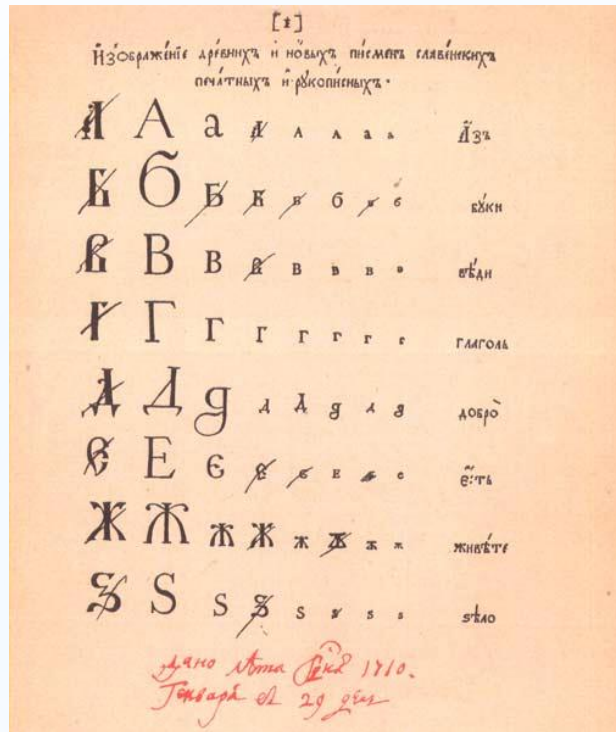 И҆зображе́нїе дре́внихъ и҆ но́выхъ пи́сменъ славе́нскихъ
печа́тныхъ и҆ рꙋкопи́сныхъ.
А А а А А А а а А҆́зъ
Б Б Б Б Б б Б б бꙋ́ки
В В В В В В В В вѣ́ди
Г Г Г Г Г Г Г Г глаго́ль
Д Д д Д Д д Д д добро̀
Є Е Є Є Є Е Є Є є҆́сть
Ж Ж Ж Ж Ж Ж Ж Ж живѣ́те
Ѕ Ѕ Ѕ Ѕ Ѕ Ѕ Ѕ Ѕ ѕѣло
Дано лѣта 1710.
Генваря 29 дня